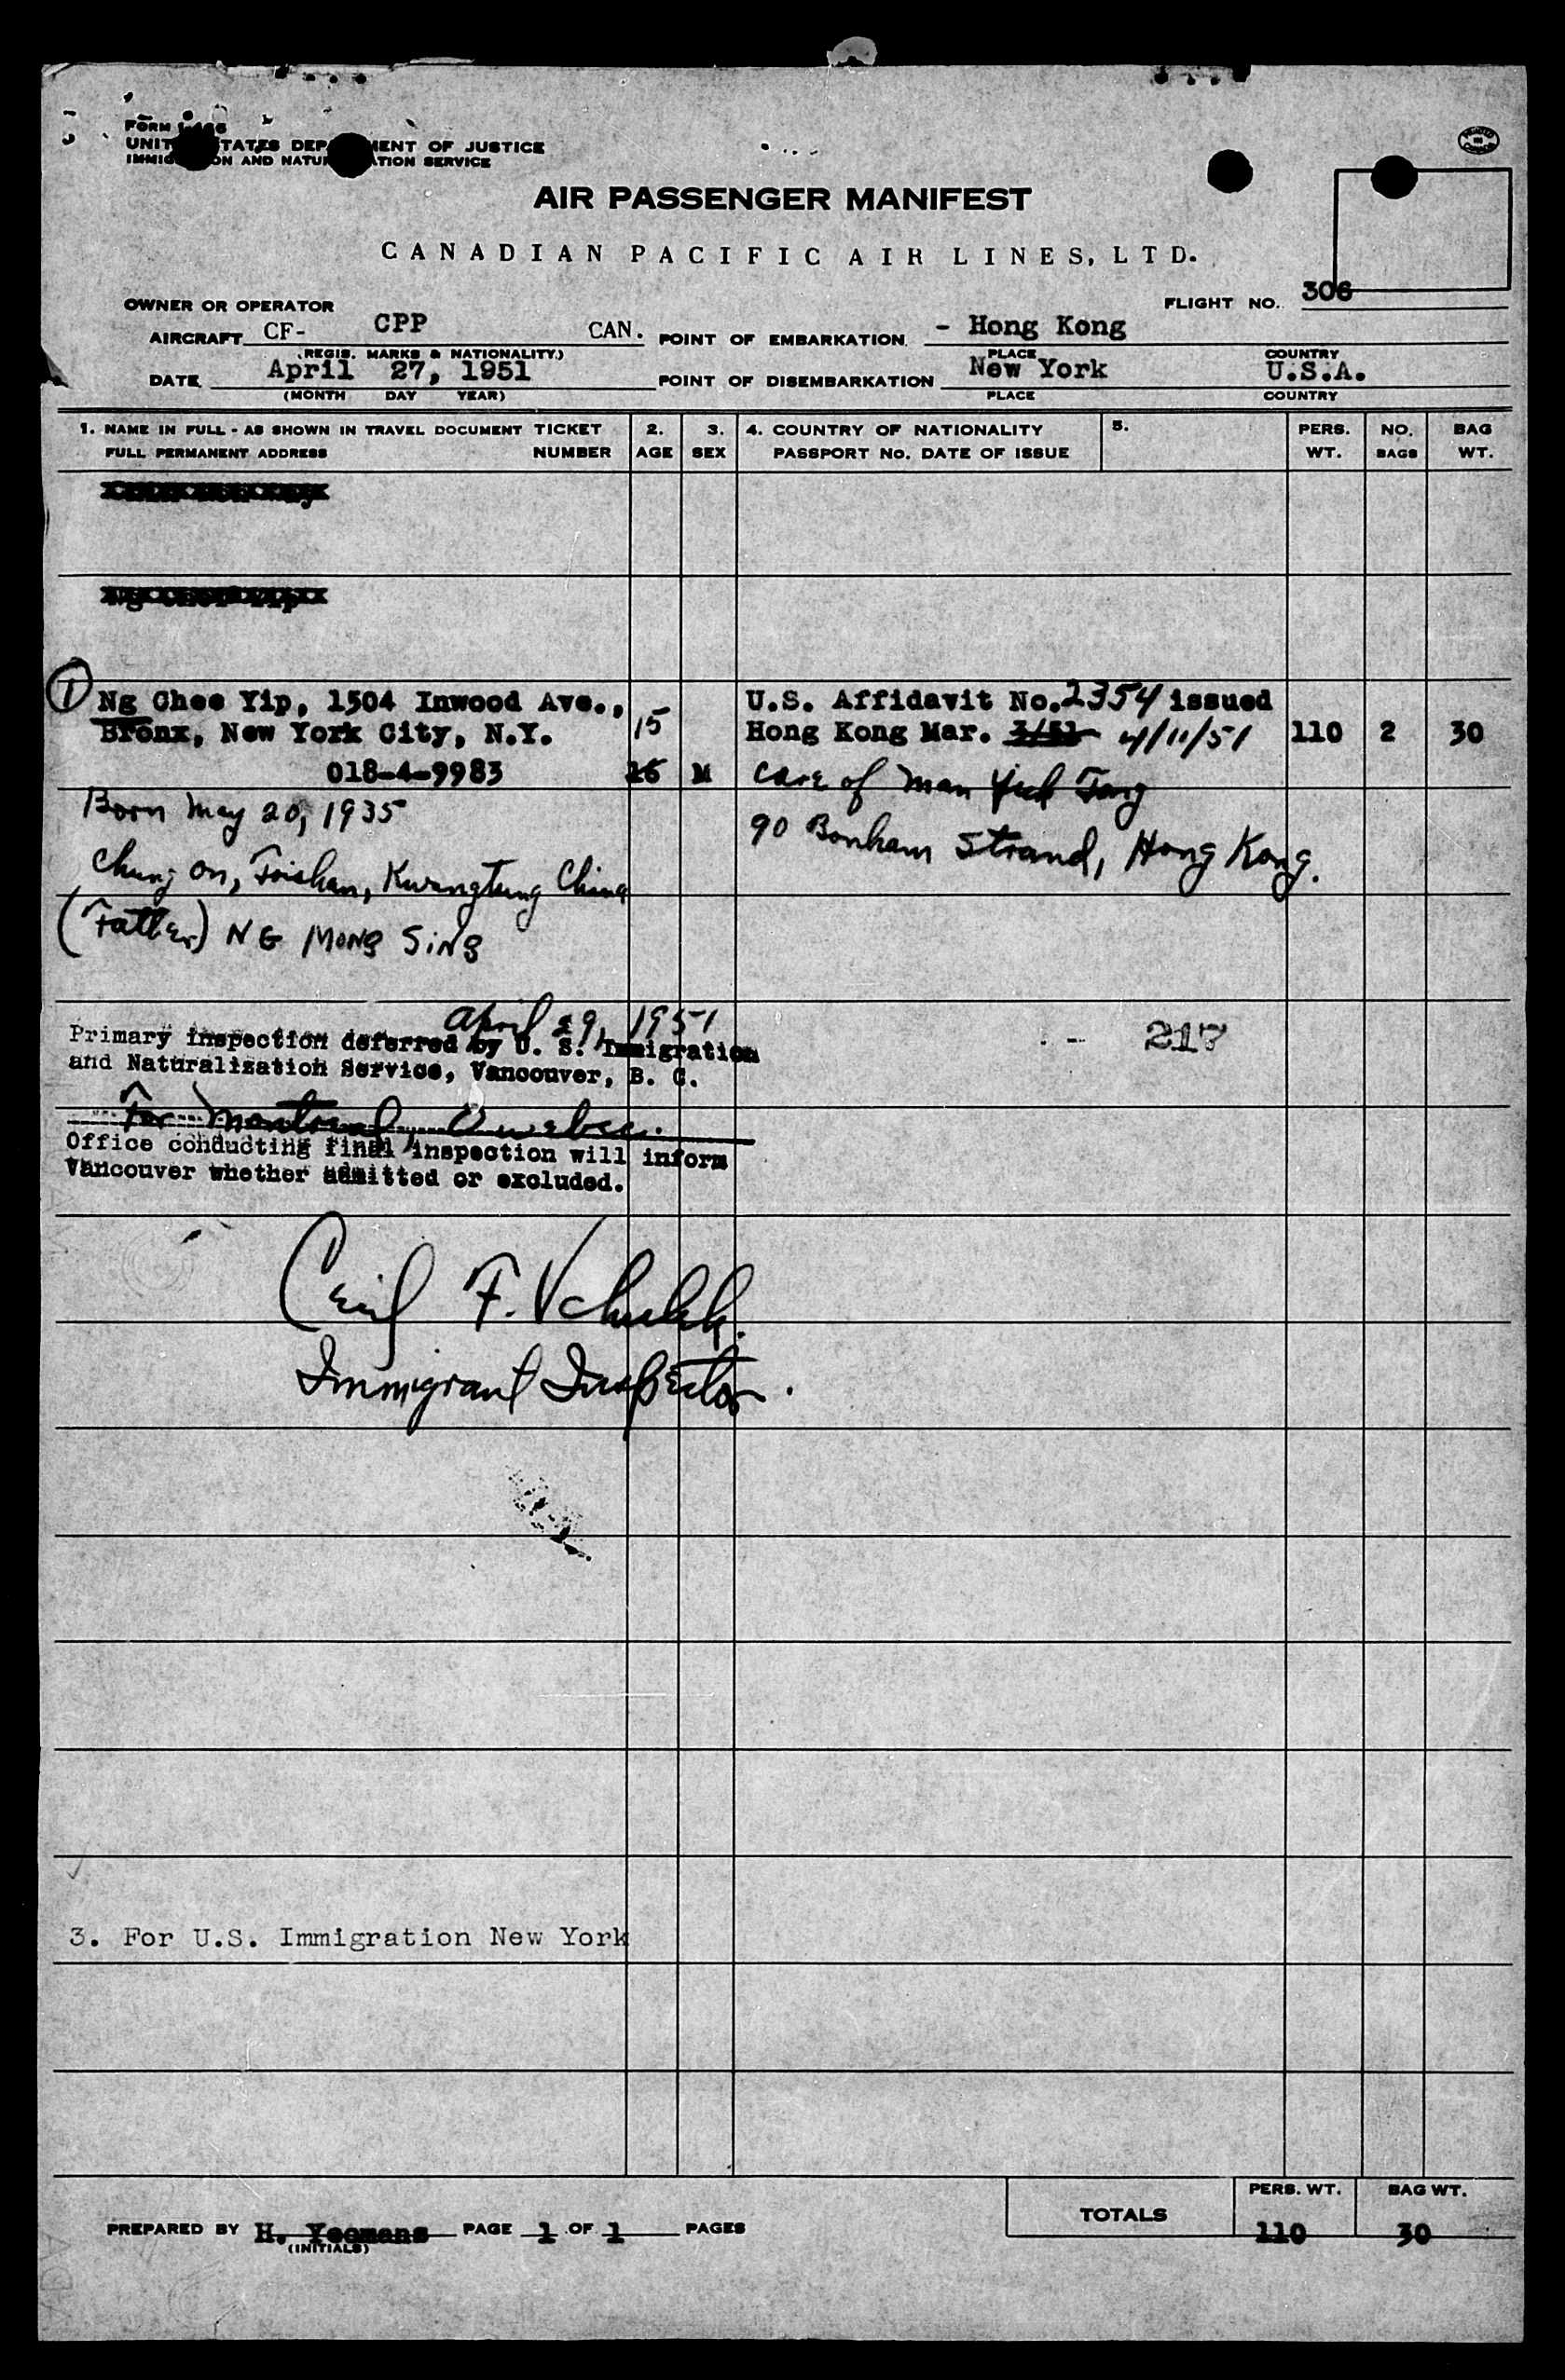 FORM I-466
UNITED STATES DEPARTMENT OF JUSTICE
IMMIGRATION AND NATURALIZATION SERVICE
AIR PASSENGER MANIFEST
CANADIAN PACIFIC AIR LINES, LTD.
OWNER OR OPERATOR
FLIGHT NO. 306
AIRCRAFT CF- CPP CAN. POINT OF EMBARKATION - Hong Kong
(REGIS. MARKS & NATIONALITY) PLACE COUNTRY
DATE April 27, 1951 POINT OF DISEMBARKATION New York U.S.A.
(MONTH DAY YEAR) PLACE COUNTRY
1. NAME IN FULL - AS SHOWN IN TRAVEL DOCUMENT TICKET 2. 3. 4. COUNTRY OF NATIONALITY 5. PERS. NO. BAG
FULL PERMANENT ADDRESS NUMBER AGE SEX PASSPORT No. DATE OF ISSUE WT. BAGS WT.
1 Ng Chee Yip, 1504 Inwood Ave., U.S. Affidavit No. 2354 issued
Bronx, New York City, N.Y. 15 Hong Kong Mar. 3/51 4/11/51 110 2 30
018-4-9983 16 M care of Man Tong
Born May 20, 1935 90 Bonham Strand, Hong Kong.
Chung On, Toishan, Kwangtung China
(Father) NG MONG SING
April 29, 1951
Primary inspection deferred by U. S. Immigration 217
and Naturalization Service, Vancouver, B. C.
For Montreal, Quebec.
Office conducting final inspection will inform
Vancouver whether admitted or excluded.
Cecil F.
Immigrant Inspector.
3. For U.S. Immigration New York
PERS. WT. BAG WT.
TOTALS
PREPARED BY H. Yeomans PAGE 1 OF 1 PAGES 110 30
(INITIALS)